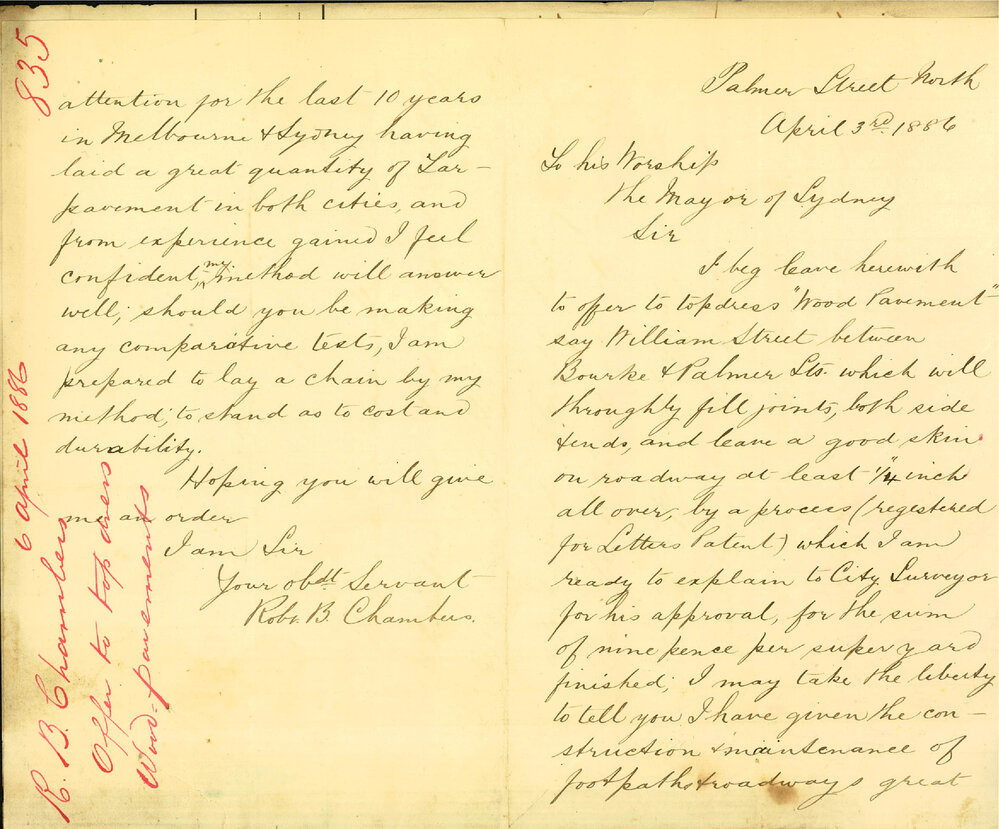 Palmer Street North
April 3rd 1886
To his Worship
The Mayor of Sydney
Sir
I beg leave herewith
to offer to topdress "Wood Pavement"
say William Street between
Bourke & Palmer Sts. which will
throughly fill joints, both side
& ends, and leave a good skin
on roadway at least 1/4" inch
all over, by a process (registered
for Letters Patent) which I am
ready to explain to City Surveyor
for his approval, for the sum
of nine pence per super yard
finished; I may take the liberty
to tell you I have given the con-
struction & maintenance of
footpaths & roadways great
attention for the last 10 years
in Melbourne & Sydney having
laid a great quantity of Tar-
pavement in both cities, and
from experience gained I feel
confident, my method will answer
well; should you be making
any comparative tests, I am
prepared to lay a chain by my
method; to stand as to cost and
durability.
Hoping you will give
me an order
I am Sir
Your obdt Servant
Robt. B. Chambers.
835
6 April 1886
R. B. Chambers
Offer to top dress
Wood-pavements